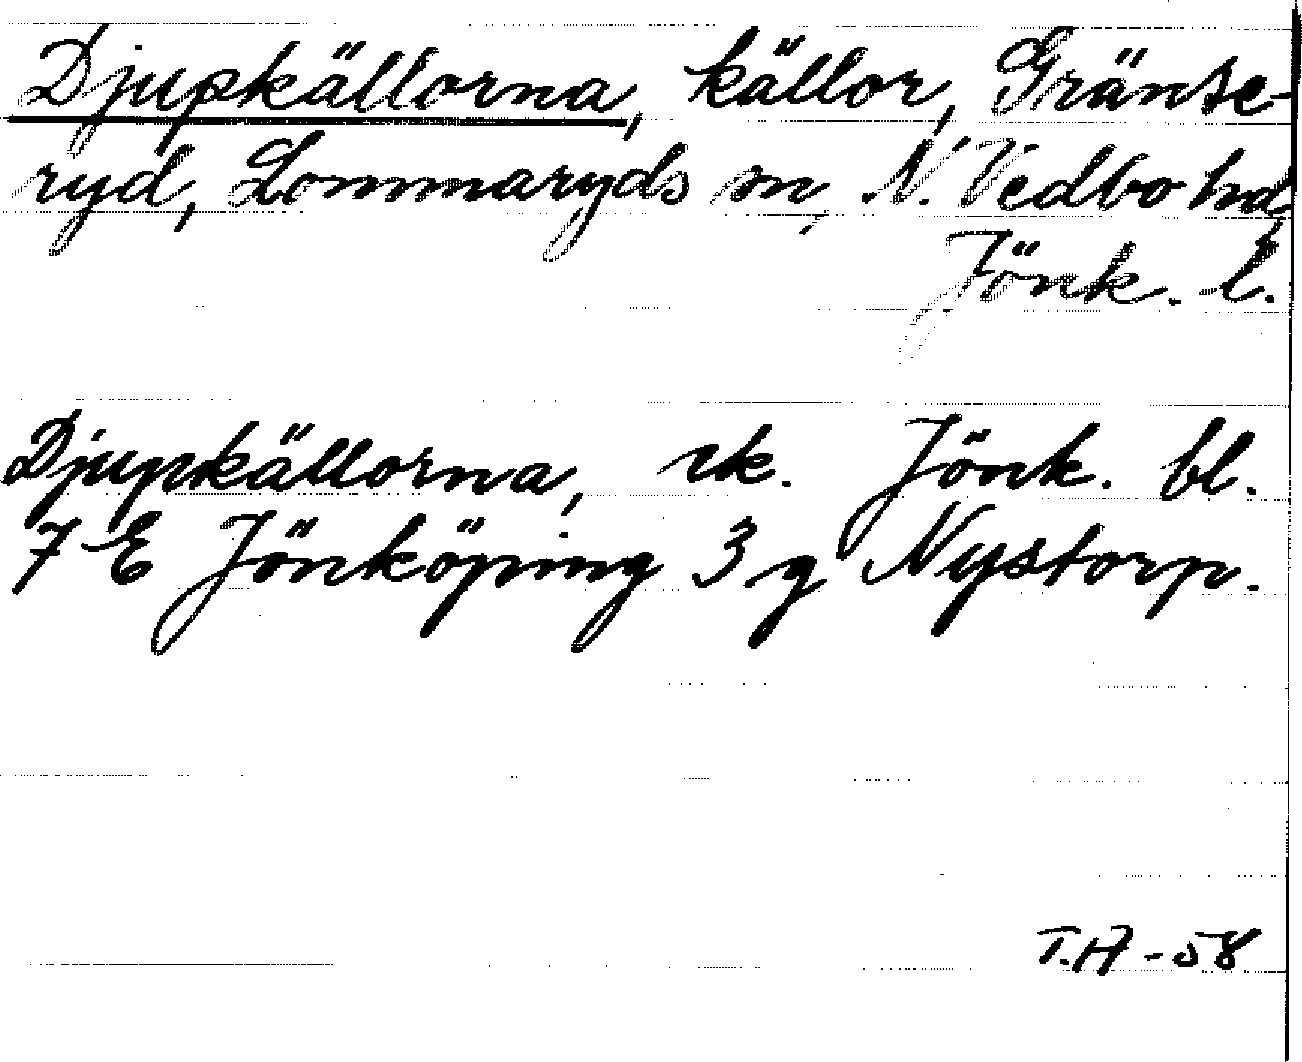 Djupkällorna, källor, Gränse-
ryd, Lommaryds sn, N. Vedbo hd,
Jönk. l.
Djupkällorna, ek. Jönk. bl.
7 E Jönköping 3 g Nystorp.
T.A -58